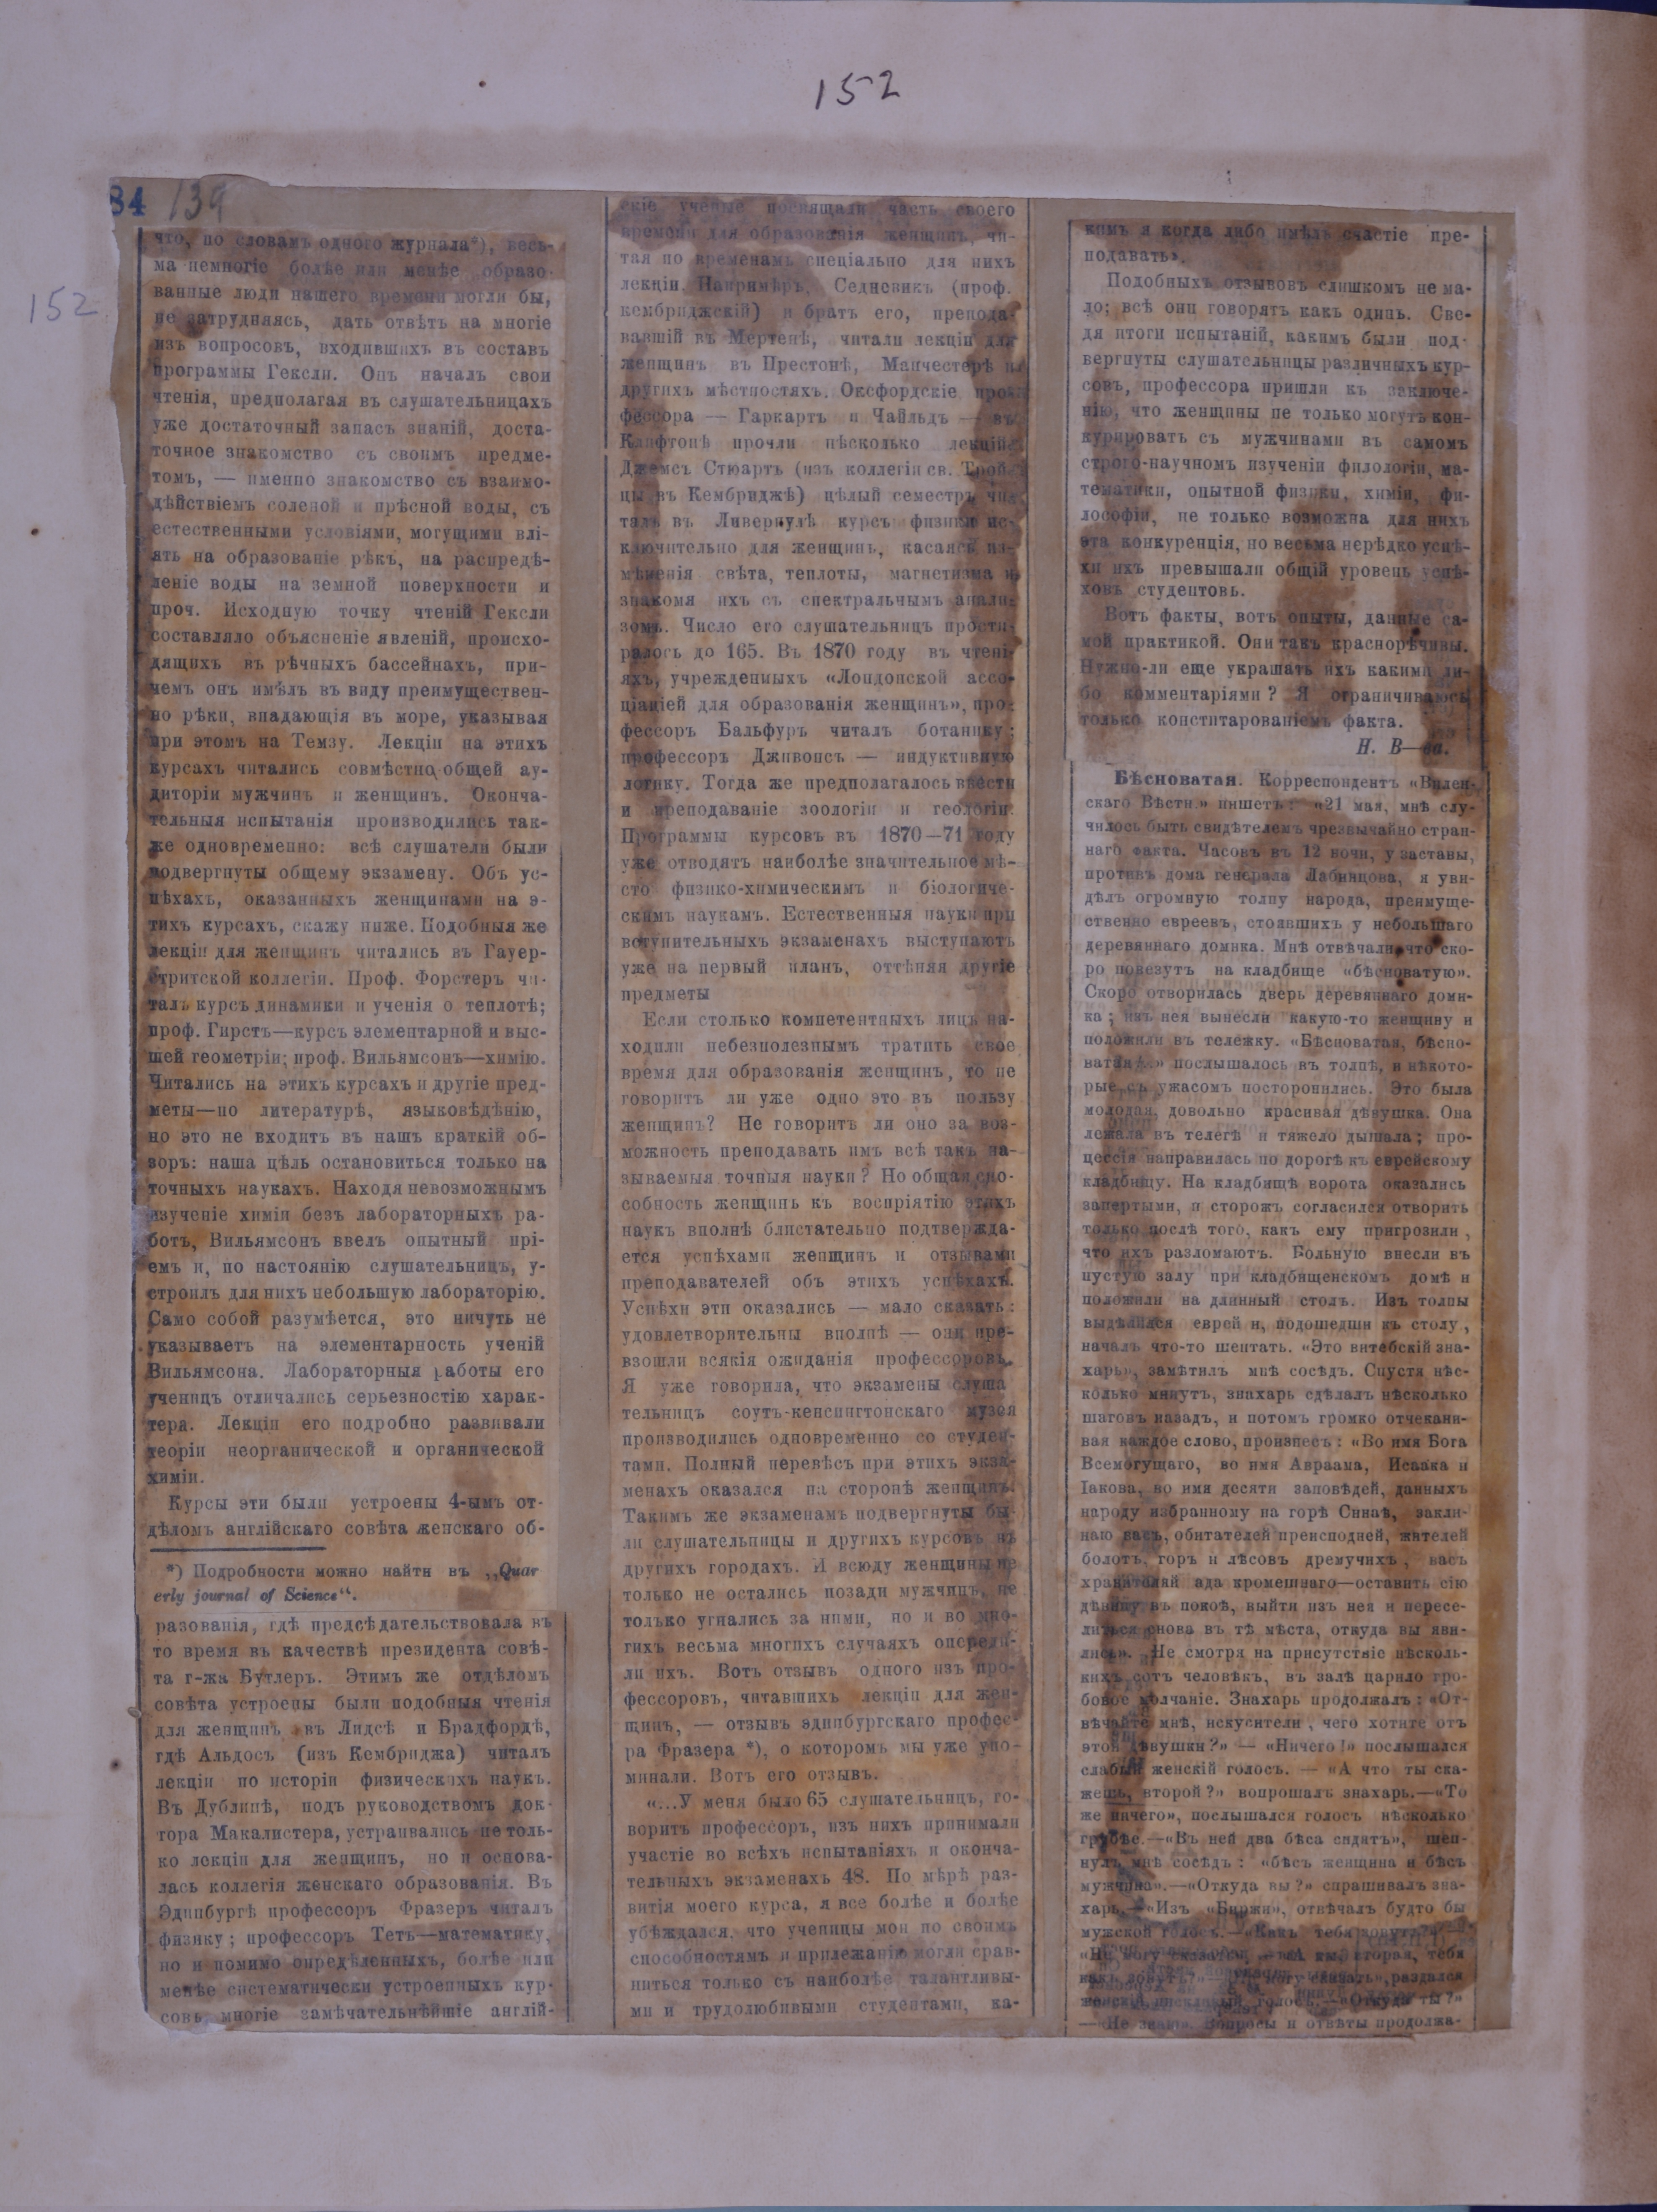 152
84 139
152
что, по словамъ одного журнала*), весь-
ма немногіе болѣе или менѣе образо-
ванные люди нашего времени могли бы,
не затрудняясь, дать отвѣтъ на многіе
изъ вопросовъ, входившихъ въ составъ
программы Гексли. Онъ началъ свои
чтенія, предполагая въ слушательницахъ
уже достаточный запасъ знаній, доста-
точное знакомство съ своимъ предме-
томъ, — именно знакомство съ взаимо-
дѣйствіемъ соленой и прѣсной воды, съ
естественными условіями, могущими влі-
ять на образованіе рѣкъ, на распредѣ-
леніе воды на земной поверхности и
проч. Исходную точку чтеній Гексли
составляло объясненіе явленій, происхо-
дящихъ въ рѣчныхъ бассейнахъ, при-
чемъ онъ имѣлъ въ виду преимуществен-
но рѣки, впадающія въ море, указывая
при этомъ на Темзу. Лекціи на этихъ
курсахъ читались совмѣстно общей ау-
диторіи мужчинъ и женщинъ. Оконча-
тельныя испытанія производились так-
же одновременно: всѣ слушатели были
подвергнуты общему экзамену. Объ ус-
пѣхахъ, оказанныхъ женщинами на э-
тихъ курсахъ, скажу ниже. Подобныя же
лекціи для женщинъ читались въ Гауер-
стритской коллегіи. Проф. Форстеръ чи-
талъ курсъ динамики и ученія о теплотѣ;
проф. Гирстъ—курсъ элементарной и выс-
шей геометріи; проф. Вильямсонъ—химію.
Читались на этихъ курсахъ и другіе пред-
меты—по литературѣ, языковѣдѣнію,
но это не входитъ въ нашъ краткій об-
зоръ: наша цѣль остановиться только на
точныхъ наукахъ. Находя невозможнымъ
изученіе химіи безъ лабораторныхъ ра-
ботъ, Вильямсонъ ввелъ опытный прі-
емъ и, по настоянію слушательницъ, у-
строилъ для нихъ небольшую лабораторію.
Само собой разумѣется, это ничуть не
указываетъ на элементарность ученій
Вильямсона. Лабораторныя работы его
ученицъ отличались серьезностію харак-
тера. Лекціи его подробно развивали
теоріи неорганической и органической
химіи.
Курсы эти были устроены 4-ымъ от-
дѣломъ англійскаго совѣта женскаго об-
*) Подробности можно найти въ „Quar
erly journal of Science“.
разованія, гдѣ предсѣдательствовала въ
то время въ качествѣ президента совѣ-
та г-жа Бутлеръ. Этимъ же отдѣломъ
совѣта устроены были подобныя чтенія
для женщинъ въ Лидсѣ и Брадфордѣ,
гдѣ Альдосъ (изъ Кембриджа) читалъ
лекціи по исторіи физическихъ наукъ.
Въ Дублинѣ, подъ руководствомъ док-
тора Макалистера, устраивались не толь-
ко лекціи для женщинъ, но и основа-
лась коллегія женскаго образованія. Въ
Эдинбургѣ профессоръ Фразеръ читалъ
физику; профессоръ Тетъ—математику,
но и помимо опредѣленныхъ, болѣе или
менѣе систематически устроенныхъ кур-
совъ многіе замѣчательнѣйшіе англій-
скіе ученые посвящали часть своего
времени для образованія женщинъ, чи-
тая по временамъ спеціально для нихъ
лекціи. Напримѣръ, Седневикъ (проф.
кембриджскій) и братъ его, препода-
вавшій въ Мертенѣ, читали лекціи для
женщинъ въ Престонѣ, Манчестерѣ и
другихъ мѣстностяхъ. Оксфордскіе про-
фессора — Гаркартъ и Чайльдъ — въ
Клифтонѣ прочли нѣсколько лекцій.
Джемсъ Стюартъ (изъ коллегіи св. Трой-
цы въ Кембриджѣ) цѣлый семестръ чи-
талъ въ Ливерпулѣ курсъ физики ис-
ключительно для женщинъ, касаясь из-
мѣненія свѣта, теплоты, магнетизма и
знакомя ихъ съ спектральнымъ анали-
зомъ. Число его слушательницъ прости-
ралось до 165. Въ 1870 году въ чтені-
яхъ, учрежденныхъ «Лондонской ассо-
ціаціей для образованія женщинъ», про-
фессоръ Бальфуръ читалъ ботанику;
профессоръ Дживонсъ — индуктивную
логику. Тогда же предполагалось ввести
и преподаваніе зоологіи и геологіи.
Программы курсовъ въ 1870—71 году
уже отводятъ наиболѣе значительное мѣ-
сто физико-химическимъ и біологиче-
скимъ наукамъ. Естественныя науки при
вступительныхъ экзаменахъ выступаютъ
уже на первый планъ, оттѣняя другіе
предметы
Если столько компетентныхъ лицъ на-
ходили небезполезнымъ тратить свое
время для образованія женщинъ, то не
говоритъ ли уже одно это въ пользу
женщинъ? Не говоритъ ли оно за воз-
можность преподавать имъ всѣ такъ на-
зываемыя точныя науки? Но общая спо-
собность женщинъ къ воспріятію этихъ
наукъ вполнѣ блистательно подтвержда-
ется успѣхами женщинъ и отзывами
преподавателей объ этихъ успѣхахъ.
Успѣхи эти оказались — мало сказать:
удовлетворительны вполнѣ — они пре-
взошли всякія ожиданія профессоровъ.
Я уже говорила, что экзамены слуша
тельницъ соутъ-кенсингтонскаго музея
производились одновременно со студен-
тами. Полный перевѣсъ при этихъ экза-
менахъ оказался на сторонѣ женщинъ.
Такимъ же экзаменамъ подвергнуты бы-
ли слушательницы и другихъ курсовъ въ
другихъ городахъ. И всюду женщины не
только не остались позади мужчинъ, не
только угнались за ними, но и во мно-
гихъ весьма многихъ случаяхъ опереди-
ли ихъ. Вотъ отзывъ одного изъ про-
фессоровъ, читавшихъ лекціи для жен-
щинъ, — отзывъ эдинбургскаго профес-
ра Фразера *), о которомъ мы уже упо-
минали. Вотъ его отзывъ.
«...У меня было 65 слушательницъ, го-
воритъ профессоръ, изъ нихъ принимали
участіе во всѣхъ испытаніяхъ и оконча-
тельныхъ экзаменахъ 48. По мѣрѣ раз-
витія моего курса, я все болѣе и болѣе
убѣждался, что ученицы мои по своимъ
способностямъ и прилежанію могли срав-
ниться только съ наиболѣе талантливы-
ми и трудолюбивыми студентами, ка-
кимъ я когда либо имѣлъ счастіе пре-
подавать».
Подобныхъ отзывовъ слишкомъ не ма-
ло; всѣ они говорятъ какъ одинъ. Све-
дя итоги испытаній, какимъ были под-
вергнуты слушательницы различныхъ кур-
совъ, профессора пришли къ заключе-
нію, что женщины не только могутъ кон-
курировать съ мужчинами въ самомъ
строго-научномъ изученіи филологіи, ма-
тематики, опытной физики, химіи, фи-
лософіи, не только возможна для нихъ
эта конкуренція, но весьма нерѣдко успѣ-
хи ихъ превышали общій уровень успѣ-
ховъ студентовъ.
Вотъ факты, вотъ опыты, данные са-
мой практикой. Они такъ краснорѣчивы.
Нужно-ли еще украшать ихъ какими ли-
бо комментаріями? Я ограничиваюсь
только констатированіемъ факта.
Н. В—ва.
Бѣсноватая. Корреспондентъ «Вилен-
скаго Вѣстн.» пишетъ: «21 мая, мнѣ слу-
чилось быть свидѣтелемъ чрезвычайно стран-
наго факта. Часовъ въ 12 ночи, у заставы,
противъ дома генерала Лабинцова, я уви-
дѣлъ огромную толпу народа, преимуще-
ственно евреевъ, стоявшихъ у небольшаго
деревяннаго домика. Мнѣ отвѣчали, что ско-
ро повезутъ на кладбище «бѣсноватую».
Скоро отворилась дверь деревяннаго доми-
ка; изъ нея вынесли какую-то женщину и
положили въ тележку. «Бѣсноватая, бѣсно-
ватая!..» послышалось въ толпѣ, и нѣкото-
рые съ ужасомъ посторонились. Это была
молодая, довольно красивая дѣвушка. Она
лежала въ телегѣ и тяжело дышала; про-
цессія направилась по дорогѣ къ еврейскому
кладбищу. На кладбищѣ ворота оказались
запертыми, и сторожъ согласился отворить
только послѣ того, какъ ему пригрозили,
что ихъ разломаютъ. Больную внесли въ
пустую залу при кладбищенскомъ домѣ и
положили на длинный столъ. Изъ толпы
выдѣлился еврей и, подошедши къ столу,
началъ что-то шептать. «Это витебскій зна-
харь», замѣтилъ мнѣ сосѣдъ. Спустя нѣс-
колько минутъ, знахарь сдѣлалъ нѣсколько
шаговъ назадъ, и потомъ громко отчекани-
вая каждое слово, произнесъ: «Во имя Бога
Всемогущаго, во имя Авраама, Исаака и
Іакова, во имя десяти заповѣдей, данныхъ
народу избранному на горѣ Синаѣ, закли-
наю васъ, обитателей преисподней, жителей
болотъ, горъ и лѣсовъ дремучихъ, васъ
хранителей ада кромешнаго—оставить сію
дѣвицу въ покоѣ, выйти изъ нея и пересе-
литься снова въ тѣ мѣста, откуда вы яви-
лись». Не смотря на присутствіе нѣсколь-
кихъ сотъ человѣкъ, въ залѣ царило гро-
бовое молчаніе. Знахарь продолжалъ: «От-
вѣчайте мнѣ, искусители, чего хотите отъ
этой дѣвушки?» — «Ничего!» послышался
слабый женскій голосъ. — «А что ты ска-
жешь, второй?» вопрошалъ знахарь.—«То
же ничего», послышался голосъ нѣсколько
грубѣе.—«Въ ней два бѣса сидятъ», шеп-
нулъ мнѣ сосѣдъ: «бѣсъ женщина и бѣсъ
мужчина».—«Откуда вы?» спрашивалъ зна-
харь.—«Изъ «Биржи», отвѣчалъ будто бы
мужской голосъ.—«Какъ тебя зовутъ?»—
«Не могу сказать».—«А вы, вторая, тебя
какъ зовутъ?»— могу сказать», раздался
женскій голосъ.—«Откуда ты?»
—«Не знаю». Вопросы и отвѣты продолжа-